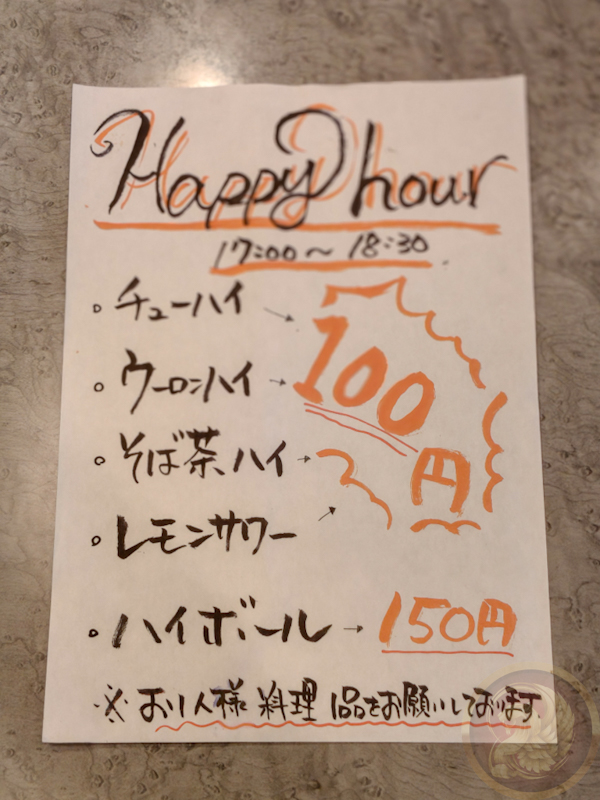 Happy hour
17:00〜18:30
。チューハイ→
100
。ウーロンハイ→
。そば茶ハイ→
円
。レモンサワー→
。ハイボール→150円
※お1人様 料理 1品をお願いしております。